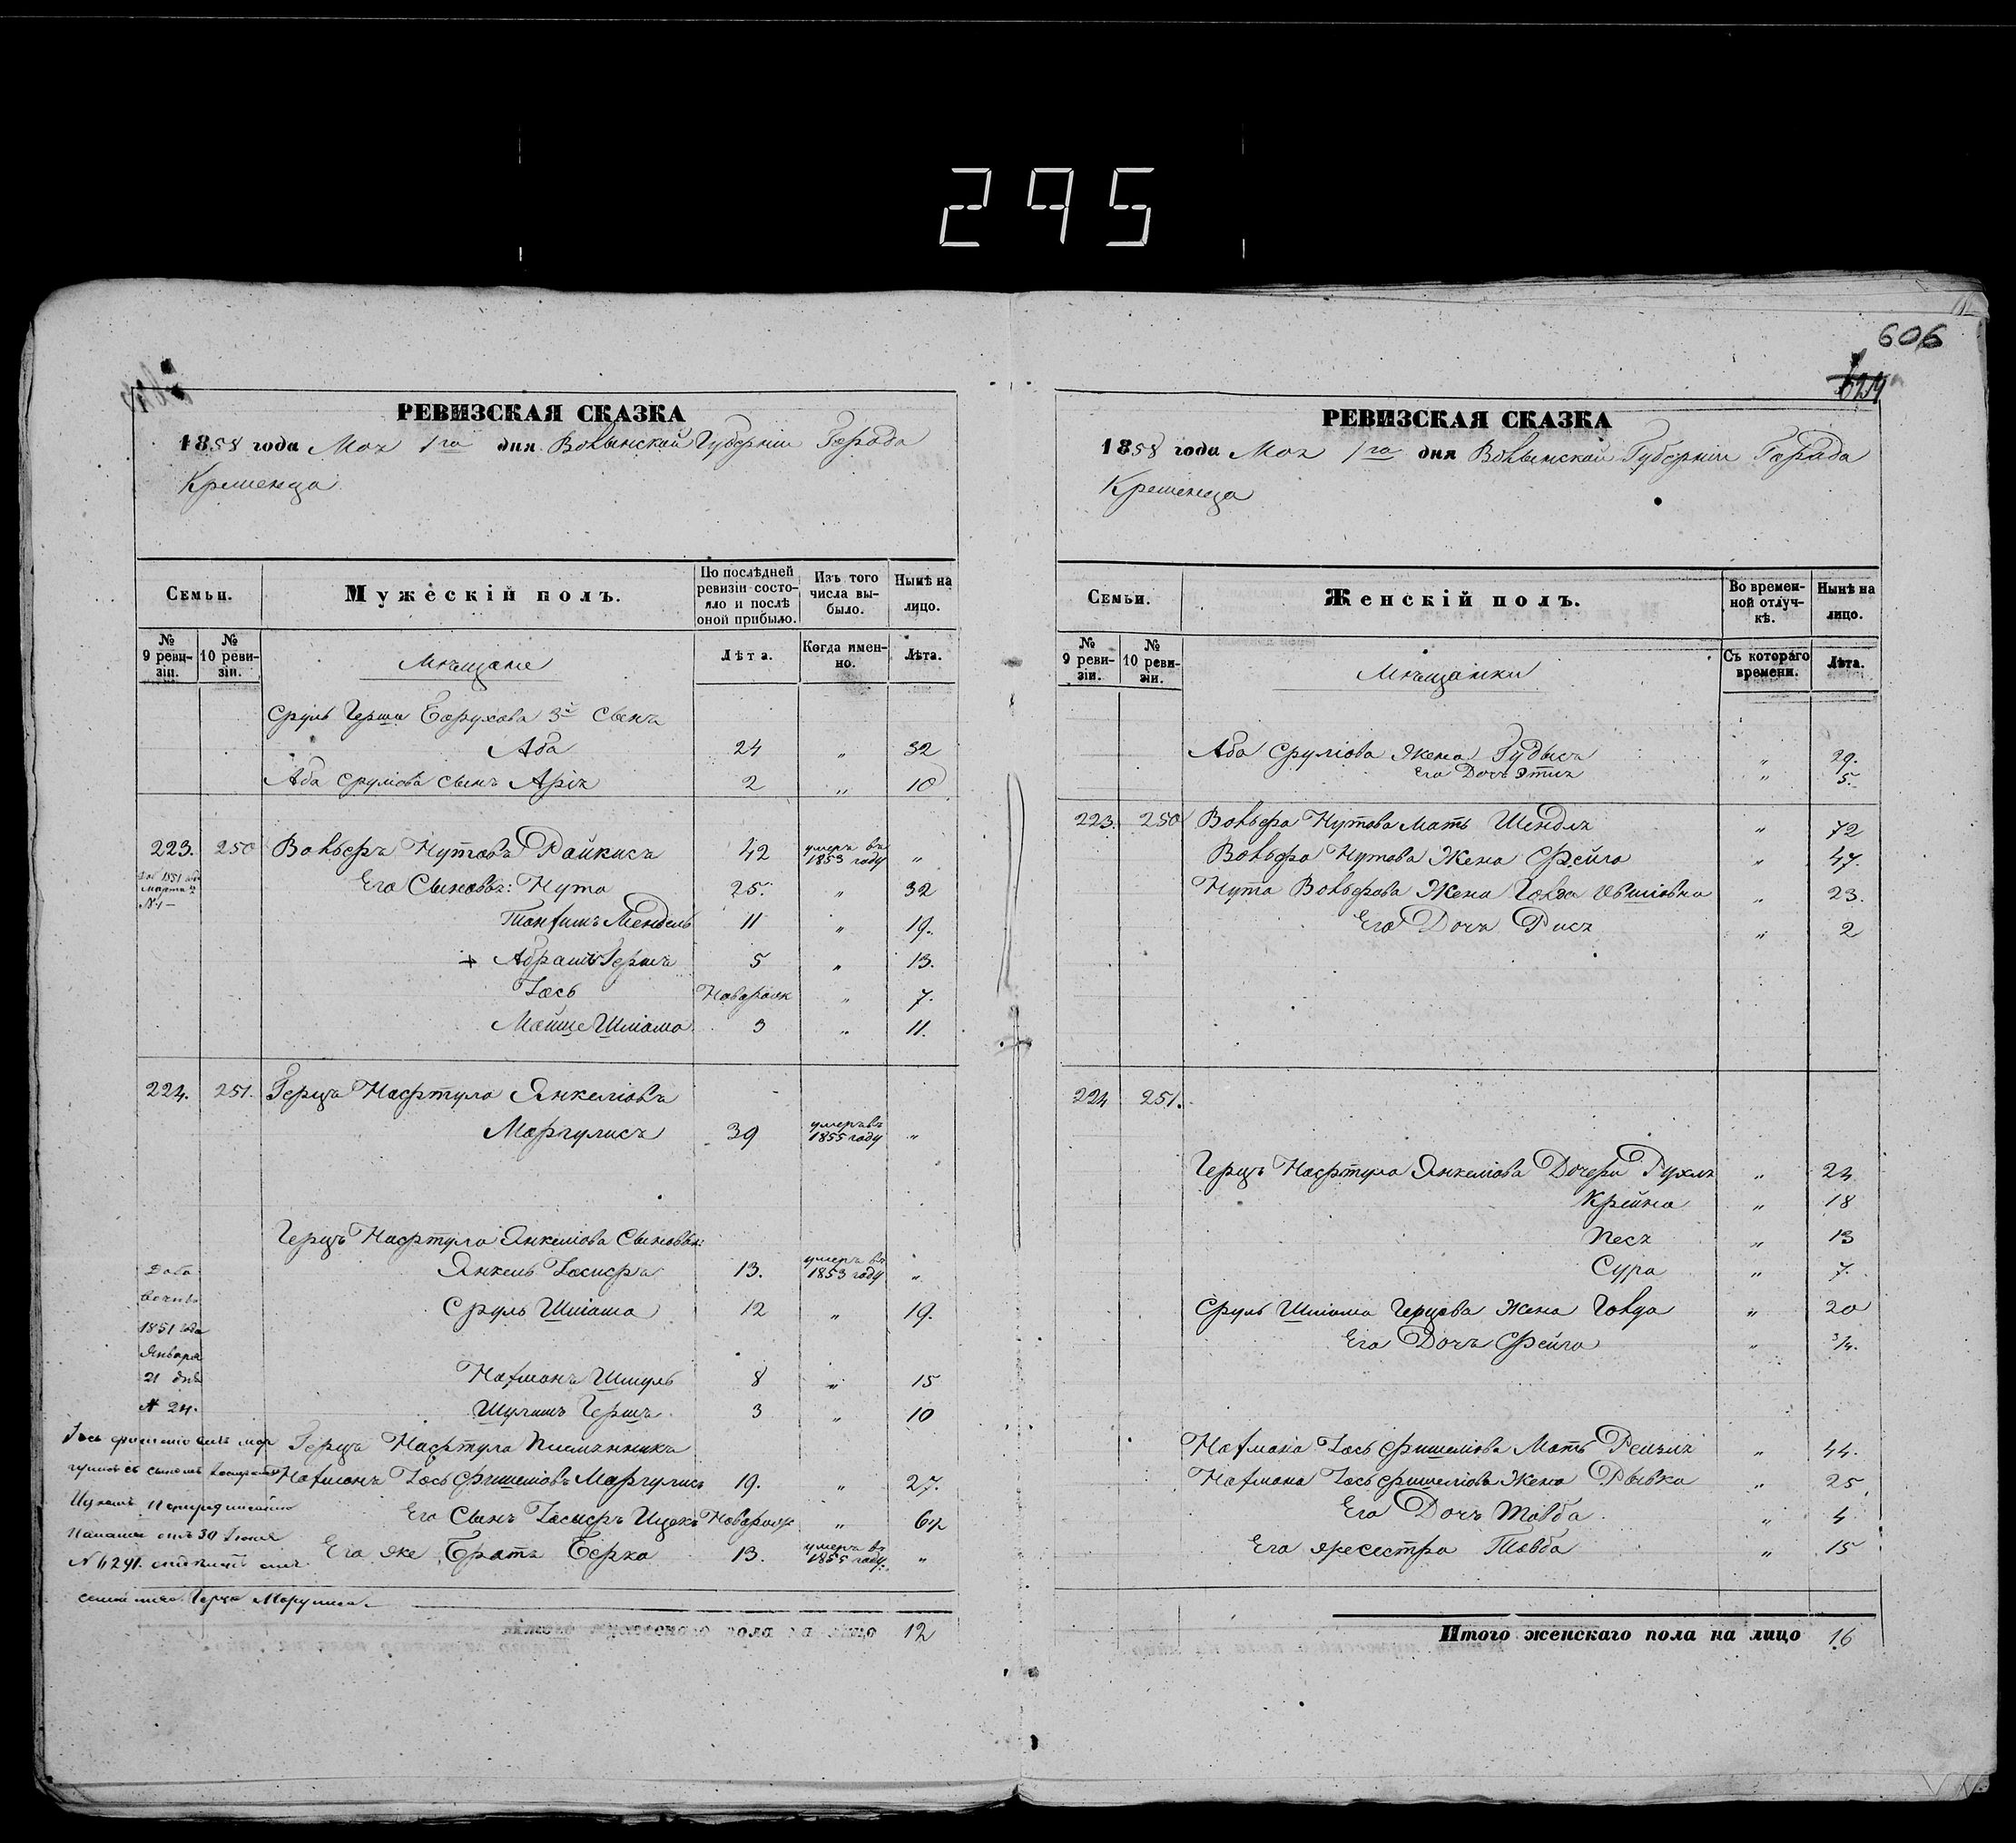 295
606
РЕВИЗСКАЯ СКАЗКА
1858 года Мая 1го дня Волынской Губерніи Города
Кременца
Семьи.
Мужескій полъ.
По послѣдней ревизіи состояло и послѣ оной прибыло.
Изъ того числа выбыло.
Нынѣ на лицо.
№ 9 ревизіи.
№ 10 ревизіи.
Мѣщане
Лѣта.
Когда именно.
Лѣта.
Сруль Герша Борухова 3й Сынъ
Аба 24 „ 32
Аба Срулiова Сынъ Аріа 2 „ 10
223. 250 Вольфъ Нутовъ Райкисъ 42 умеръ въ 1853 году „
Его Сыновья: Нута 25. „ 32
Мендель 11 „ 19.
+ Абрамъ Гершъ 5 „ 13.
Іось Новорож „ 7.
Мойше Шліома 3 „ 11.
224. 251. Герцъ Нафтула Янкеліовъ
Маргулисъ 39 умеръ въ 1855 году „
Герцъ Нафтула Янкеліова Сыновья:
Янкель Іосифъ 13. умеръ въ 1853 году „
Сруль Шліома 12 „ 19.
1851 года
Января
21 дня
№ 24.
Нахманъ Шмуль 8 „ 15
Шулимъ Гершъ 3 „ 10
Герцъ Нафтула Племянникъ
Нахманъ Іось Фишеліовъ Маргулисъ 19. „ 27.
Его Сынъ Іосифъ Ицекъ Новорож „ 6½
Его же Братъ Берко 13. умеръ въ 1855 году. „
Итого мужескаго пола на лицо 12
РЕВИЗСКАЯ СКАЗКА
1858 года Мая 1го дня Волынской Губерніи Города
Кременца
Семьи.
Женскій полъ.
Во временной отлучкѣ.
Нынѣ на лицо.
№ 9 ревизіи.
№ 10 ревизіи.
Мѣщанки
Съ котораго времени.
Лѣта.
Аба Срулiова Жена Гудысъ „ 29.
Его Дочь Этиа „ 5.
223. 250 Вольфа Нутова Мать Шендля „ 72
Вольфа Нутова Жена Фейга „ 47.
Нута Вольфова Жена Голда „ 23.
Его Дочь Рися „ 2
224 251.
Герцъ Нафтула Янкеліова Дочери Рухля „ 24
Крейна „ 18
Песя „ 13
Сура „ 7.
Сруль Шліома Герцова Жена Голда „ 20
Его Дочь Фейга „ ¾.
Нахмана Іось Фишеліова Мать Рейзля „ 44.
Нахмана Іось Фишеліова Жена Рывка „ 25
Его Дочь Товба „ 4
Его же сестра Товба „ 15
Итого женскаго пола на лицо 16